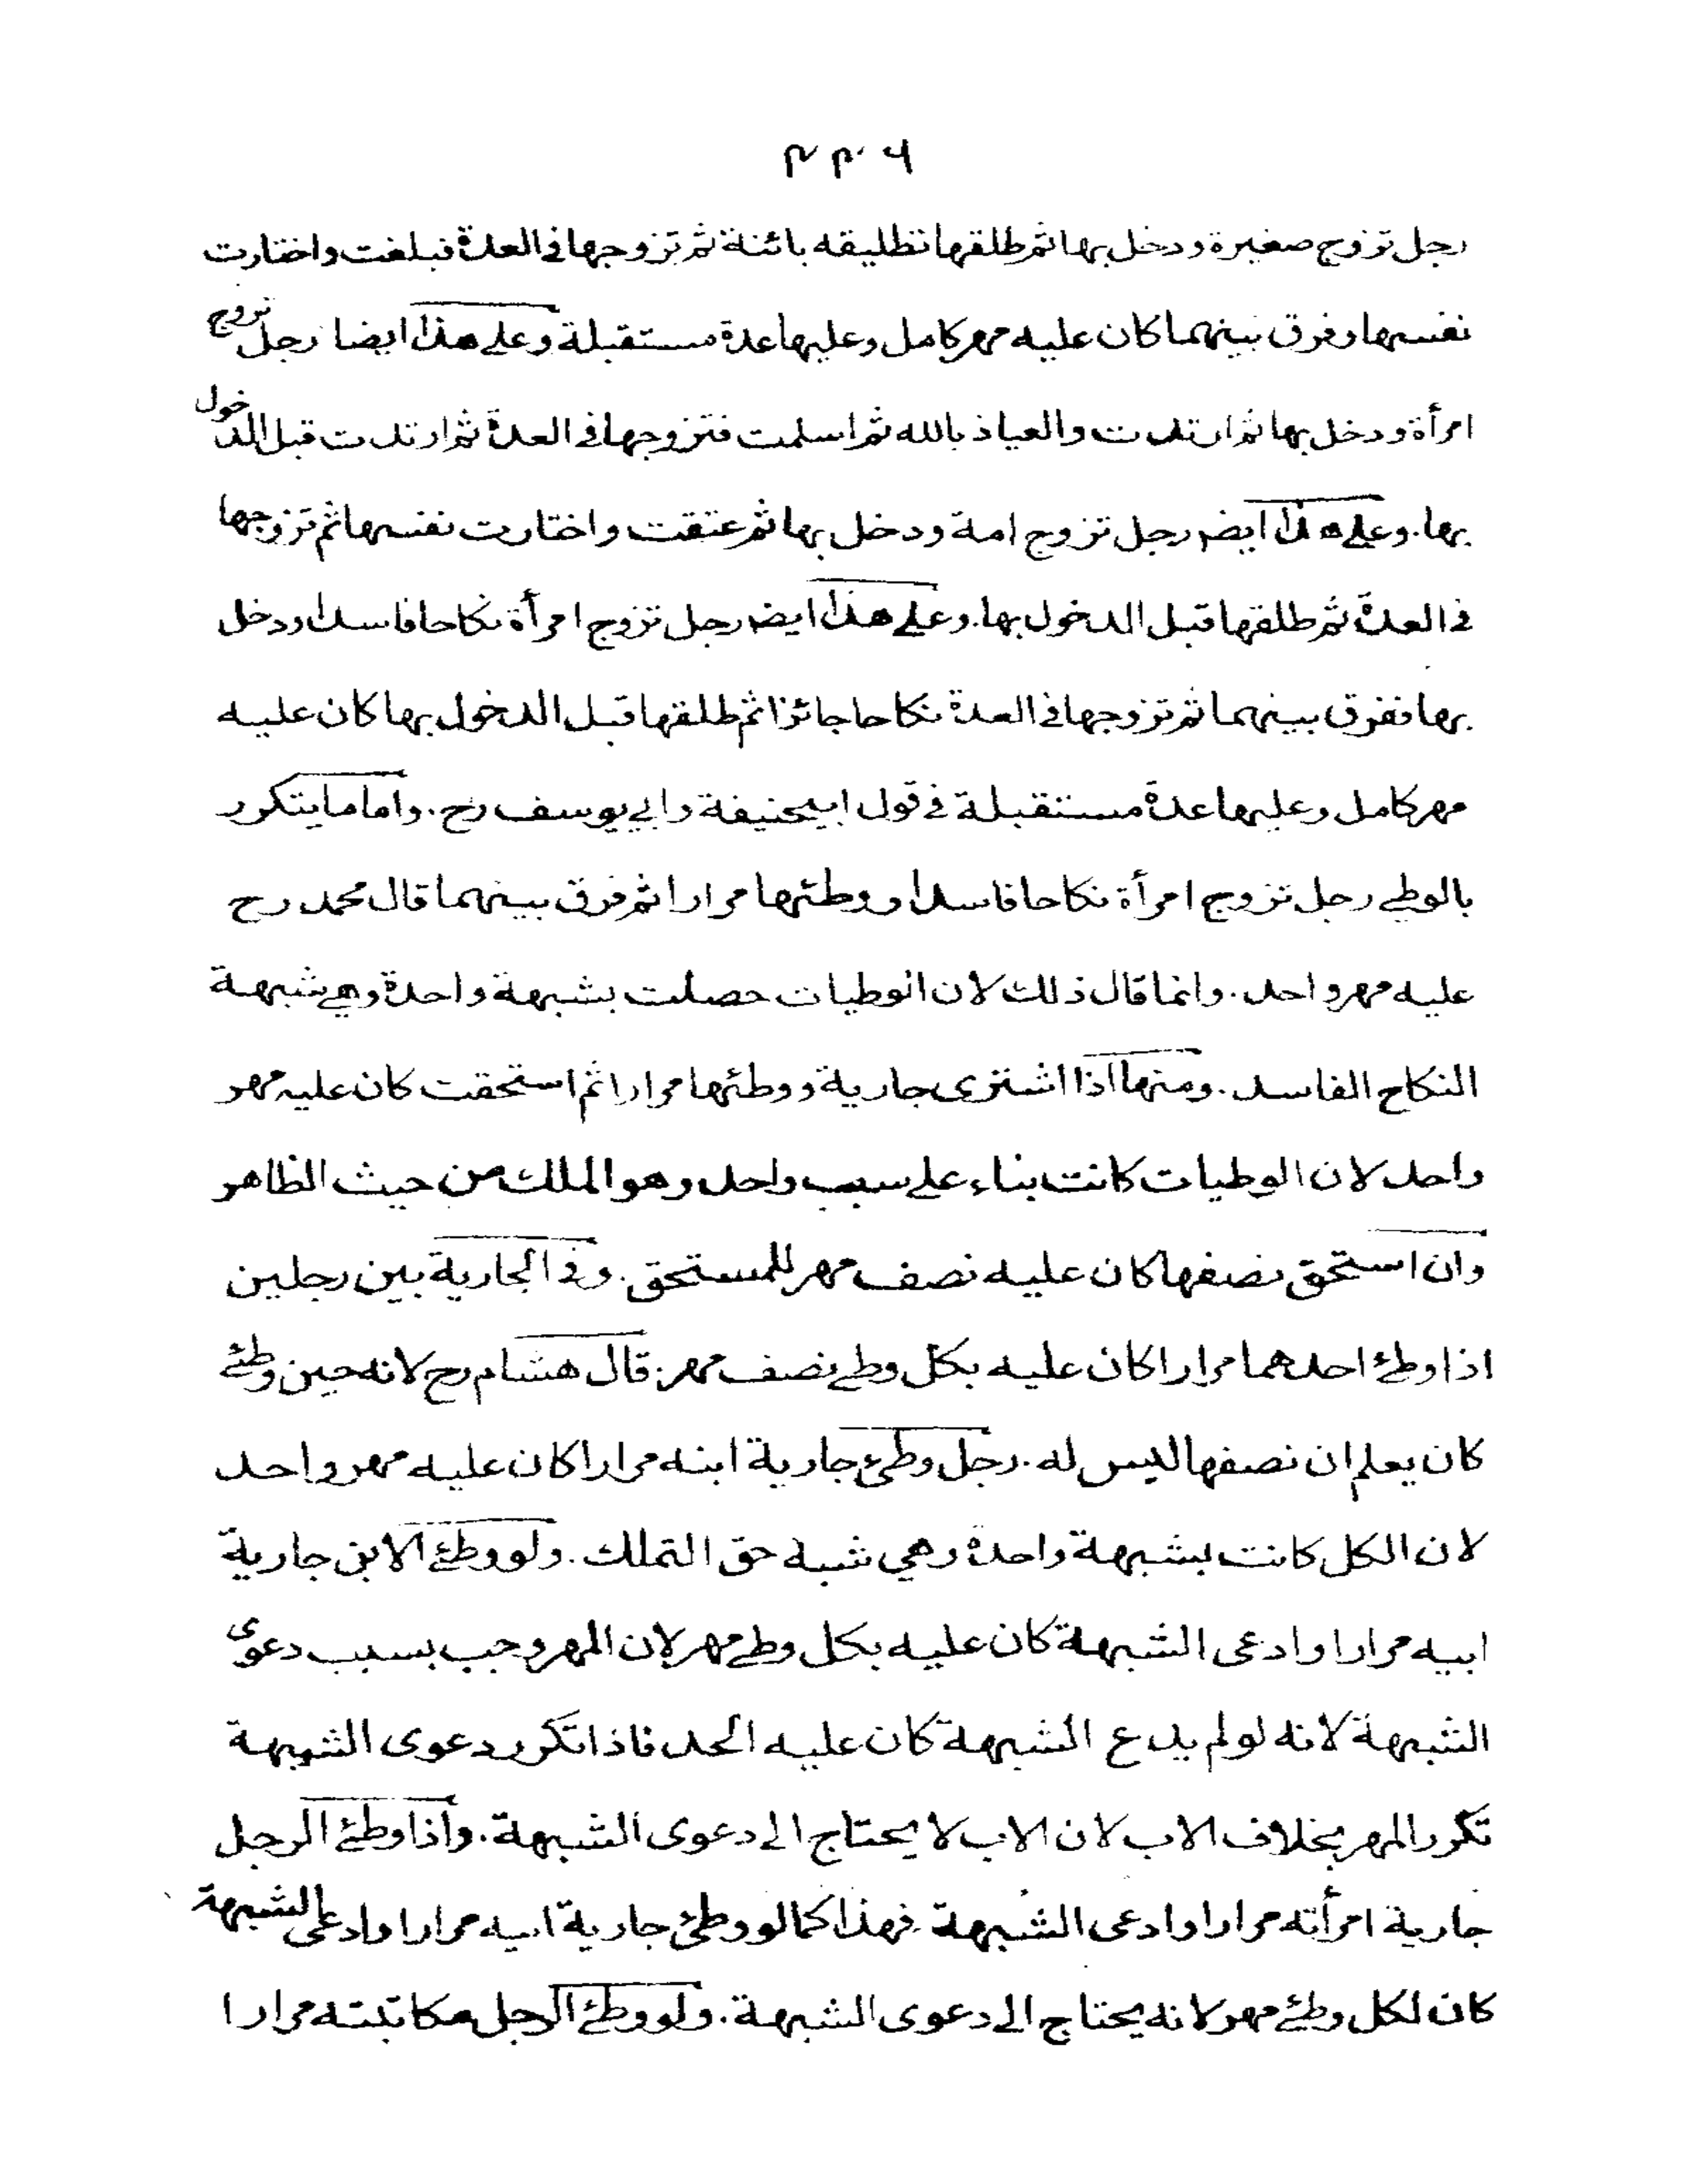 ٢٢٦
رجل تزوج صغيرة ودخل بها ثم طلقها تطليقه بائنة ثم تزوجها في العدة فبلغت واختارت
نفسها وفرق بينهما كان عليه مهر كامل وعليها عدة مستقبلة وعلى هذا ايضا رجل تزوج
امرأة ودخل بها ثم ارتدت والعياذ بالله ثم اسلمت فتزوجها في العدة ثم ارتدت قبل الدخول
بها. وعلى هذا ايضہ رجل تزوج امة ودخل بها ثم عتقت واختارت نفسها ثم تزوجها
في العدة ثم طلقها قبل الدخول بها. وعلى هذا ايضہ رجل تزوج امرأة نكاحا فاسدا ودخل
بها ففرق بينهما ثم تزوجها في العدة نكاحا جائزا ثم طلقها قبل الدخول بها كان عليه
مهر كامل وعليها عدة مستقبلة في قول ابيحنيفة وابي يوسف رح. واما ما يتكرر
بالوطي رجل تزوج امرأة نكاحا فاسدا ووطئها مرارا ثم فرق بينهما قال محمد رح
عليه مهر واحد. وانما قال ذلك لان الوطيات حصلت بشبهة واحدة وهي شبهة
النكاح الفاسد. ومنها اذا اشترى جارية ووطئها مرارا ثم استحقت كان عليه مهر
واحد لان الوطيات كانت بناء على سبب واحد وهو الملك من حيث الظاهر
وان استحق نصفها كان عليه نصف مهر للمستحق. وفي الجارية بين رجلين
اذا وطئ احدهما مرارا كان عليه بكل وطي نصف مهر: قال هشام رح لانه حين وطئ
كان يعلم ان نصفها ليس له. رجل وطئ جارية ابنه مرارا كان عليه مهر واحد
لان الكل كانت بشبهة واحدة وهي شبه حق التملك. ولو وطئ الابن جارية
ابيه مرارا وادعى الشبهة كان عليه بكل وطي مهر لان المهر وجب بسبب دعوى
الشبهة لانه لو لم يدع الشبهة كان عليه الحد فاذا تكرر دعوى الشبهة
تكرر المهر بخلاف الاب لان الاب لا يحتاج الى دعوى الشبهة. واذا وطئ الرجل
جارية امرأته مرارا وادعى الشبهة فهذا كما لو وطئ جارية ابيه مرارا وادعى الشبهة
كان لكل وطئ مهر لانه يحتاج الى دعوى الشبهة. ولو وطئ الرجل مكاتبته مرارا